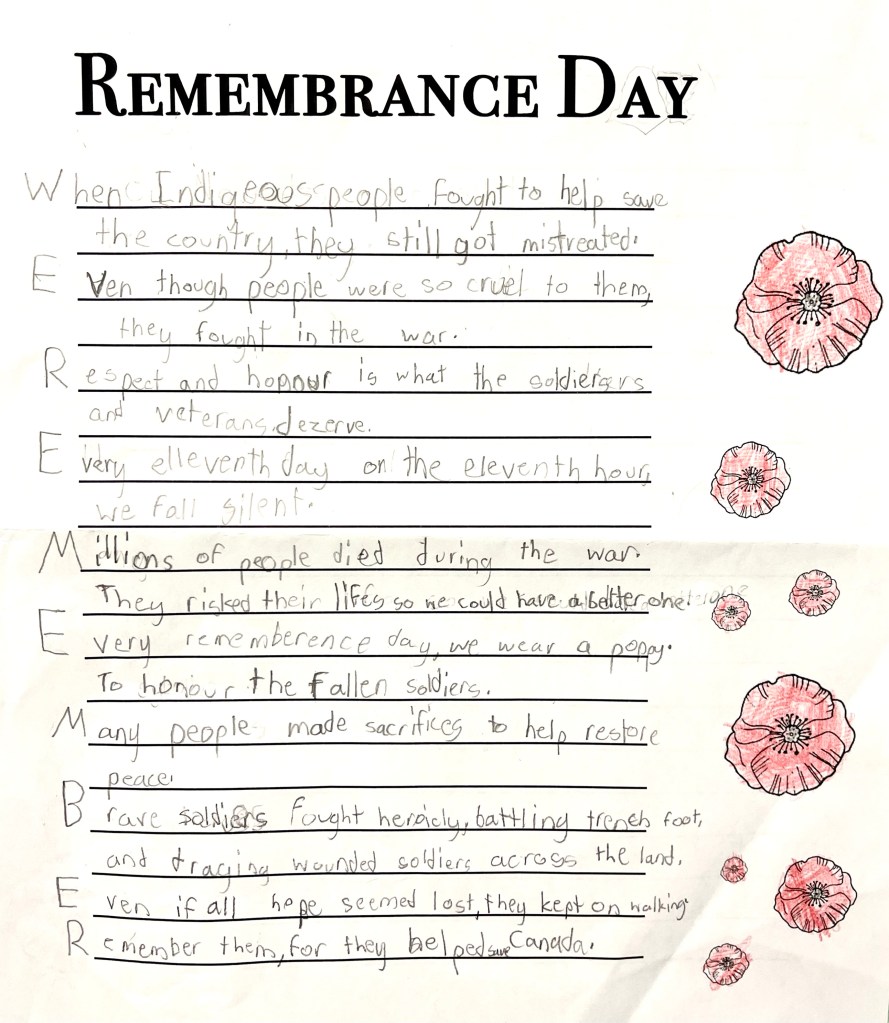 REMEMBRANCE DAY
When Indigeoos people fought to help save
the country, they still got mistreated.
E Ven though people were so cruel to them,
they fought in the war.
Respect and honour is what the soldiers
and veterans dezerve.
Every elleventh day on the eleventh hour,
we fall silent.
Millions of people died during the war.
They risked their lifes so we could have a better one.
Every rememberence day, we wear a poppy.
To honour the fallen soldiers.
Many people made sacrifices to help restore
peace.
Brave soldiers fought heroicly, battling trench foot,
and draging wounded soldiers across the land.
Even if all hope seemed lost, they kept on walking.
Remember them, for they helped save Canada.